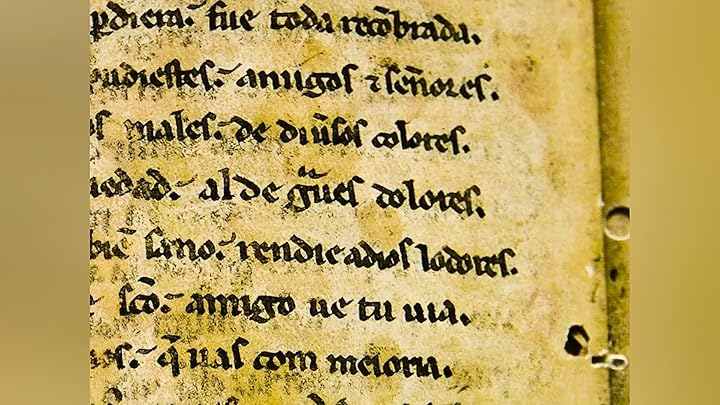 ꝑdiera. fue toda recõbrada.
udiestes. amigos ⁊ señores.
os males. de diũsos colores.
uedad. al de gͣues dolores.
biẽ sano. rendie adios lodores.
scõ. amigo ue tu uia.
os. q̃ uas com meioria.